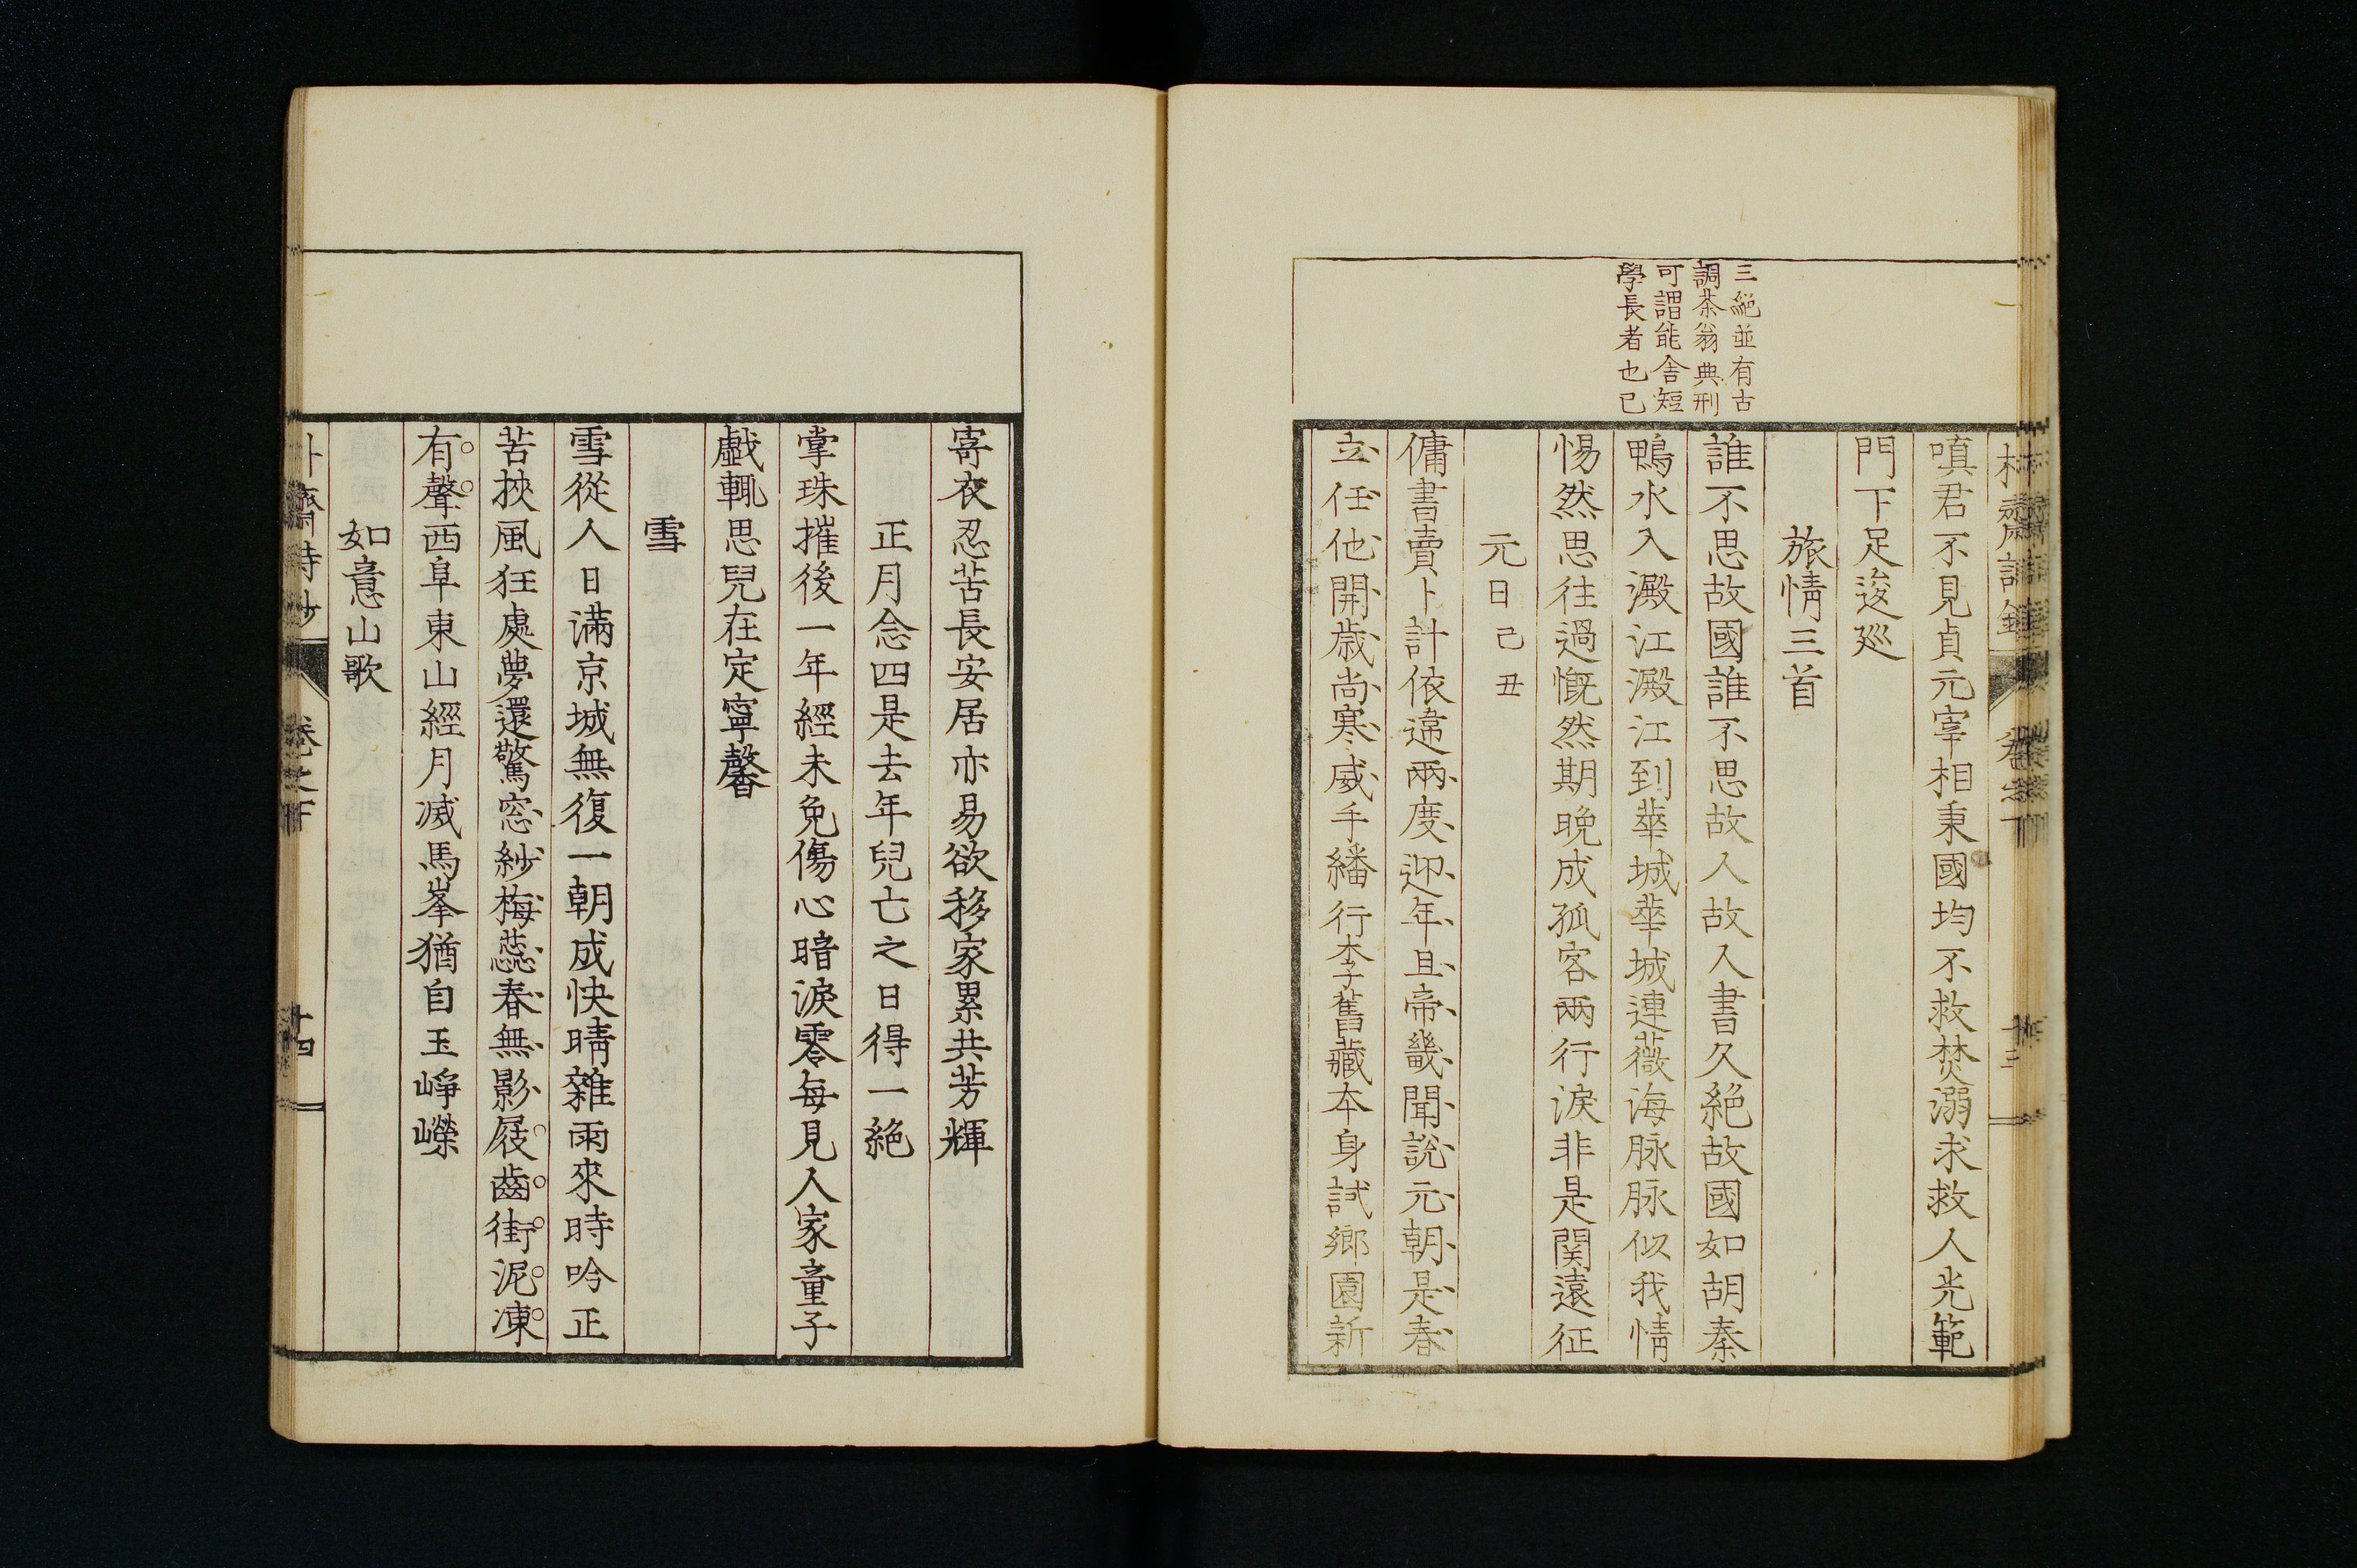 三絕並有古
調茶翁典刑
可謂能舍短
學長者也已
嗔君不見貞元宰相秉國均不救焚溺求救人光範
門下足逡巡
旅情三首
誰不思故國誰不思故人故人書久絕故國如胡秦
鴨水入澱江澱江到華城華城連薇海脉脉似我情
惕然思往過慨然期晩成孤客兩行淚非是関遠征
元日己丑
傭書賣卜計依違兩度迎年且帝畿聞說元朝是春
立任他開歲尚寒威手繙行李舊藏本身試鄉園新
寄衣忍苦長安居亦易欲移家累共芳輝
正月念四是去年兒亡之日得一絕
掌珠摧後一年經未免傷心暗淚零每見人家童子
戲輒思兒在定寧馨
雪
雪從人日滿京城無復一朝成快晴雜雨來時吟正
苦挾風狂處夢還驚窓紗梅蕊春無影屐齒街泥凍
有聲西阜東山經月滅馬峯猶自玉崢嶸
如意山歌
卷之下
十四